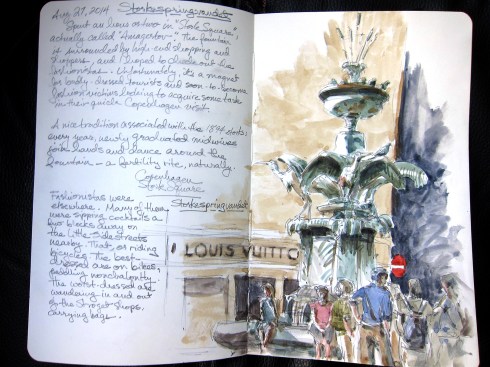 Aug 29, 2014 Storkespringvandet
Spent an hour or two in "Stork Square",
actually called "Amagertorv." The fountain
is surrounded by high-end shopping and
shoppers, and I hoped to check out the
fashionistas. Unfortunately, it's a magnet
for badly-dressed tourists and soon-to-become
fashion victims looking to acquire some taste
in their quick Copenhagen visit.
A nice tradition associated with the 1894 storks:
every year, newly graduated midwives
join hands and dance around the
fountain - a fertility rite, naturally.
Copenhagen
Stork Square
Storkespringvandet
Fashionistas were
elsewhere. Many of them
were sipping cocktails a
few blocks away on
the little side streets
nearby. That, or riding
bicycles. The best-
dressed are on bikes,
pedaling nonchalantly.
The worst-dressed are
wandering in and out
of the Stroget shops,
carrying bags.
LOUIS VUITTO